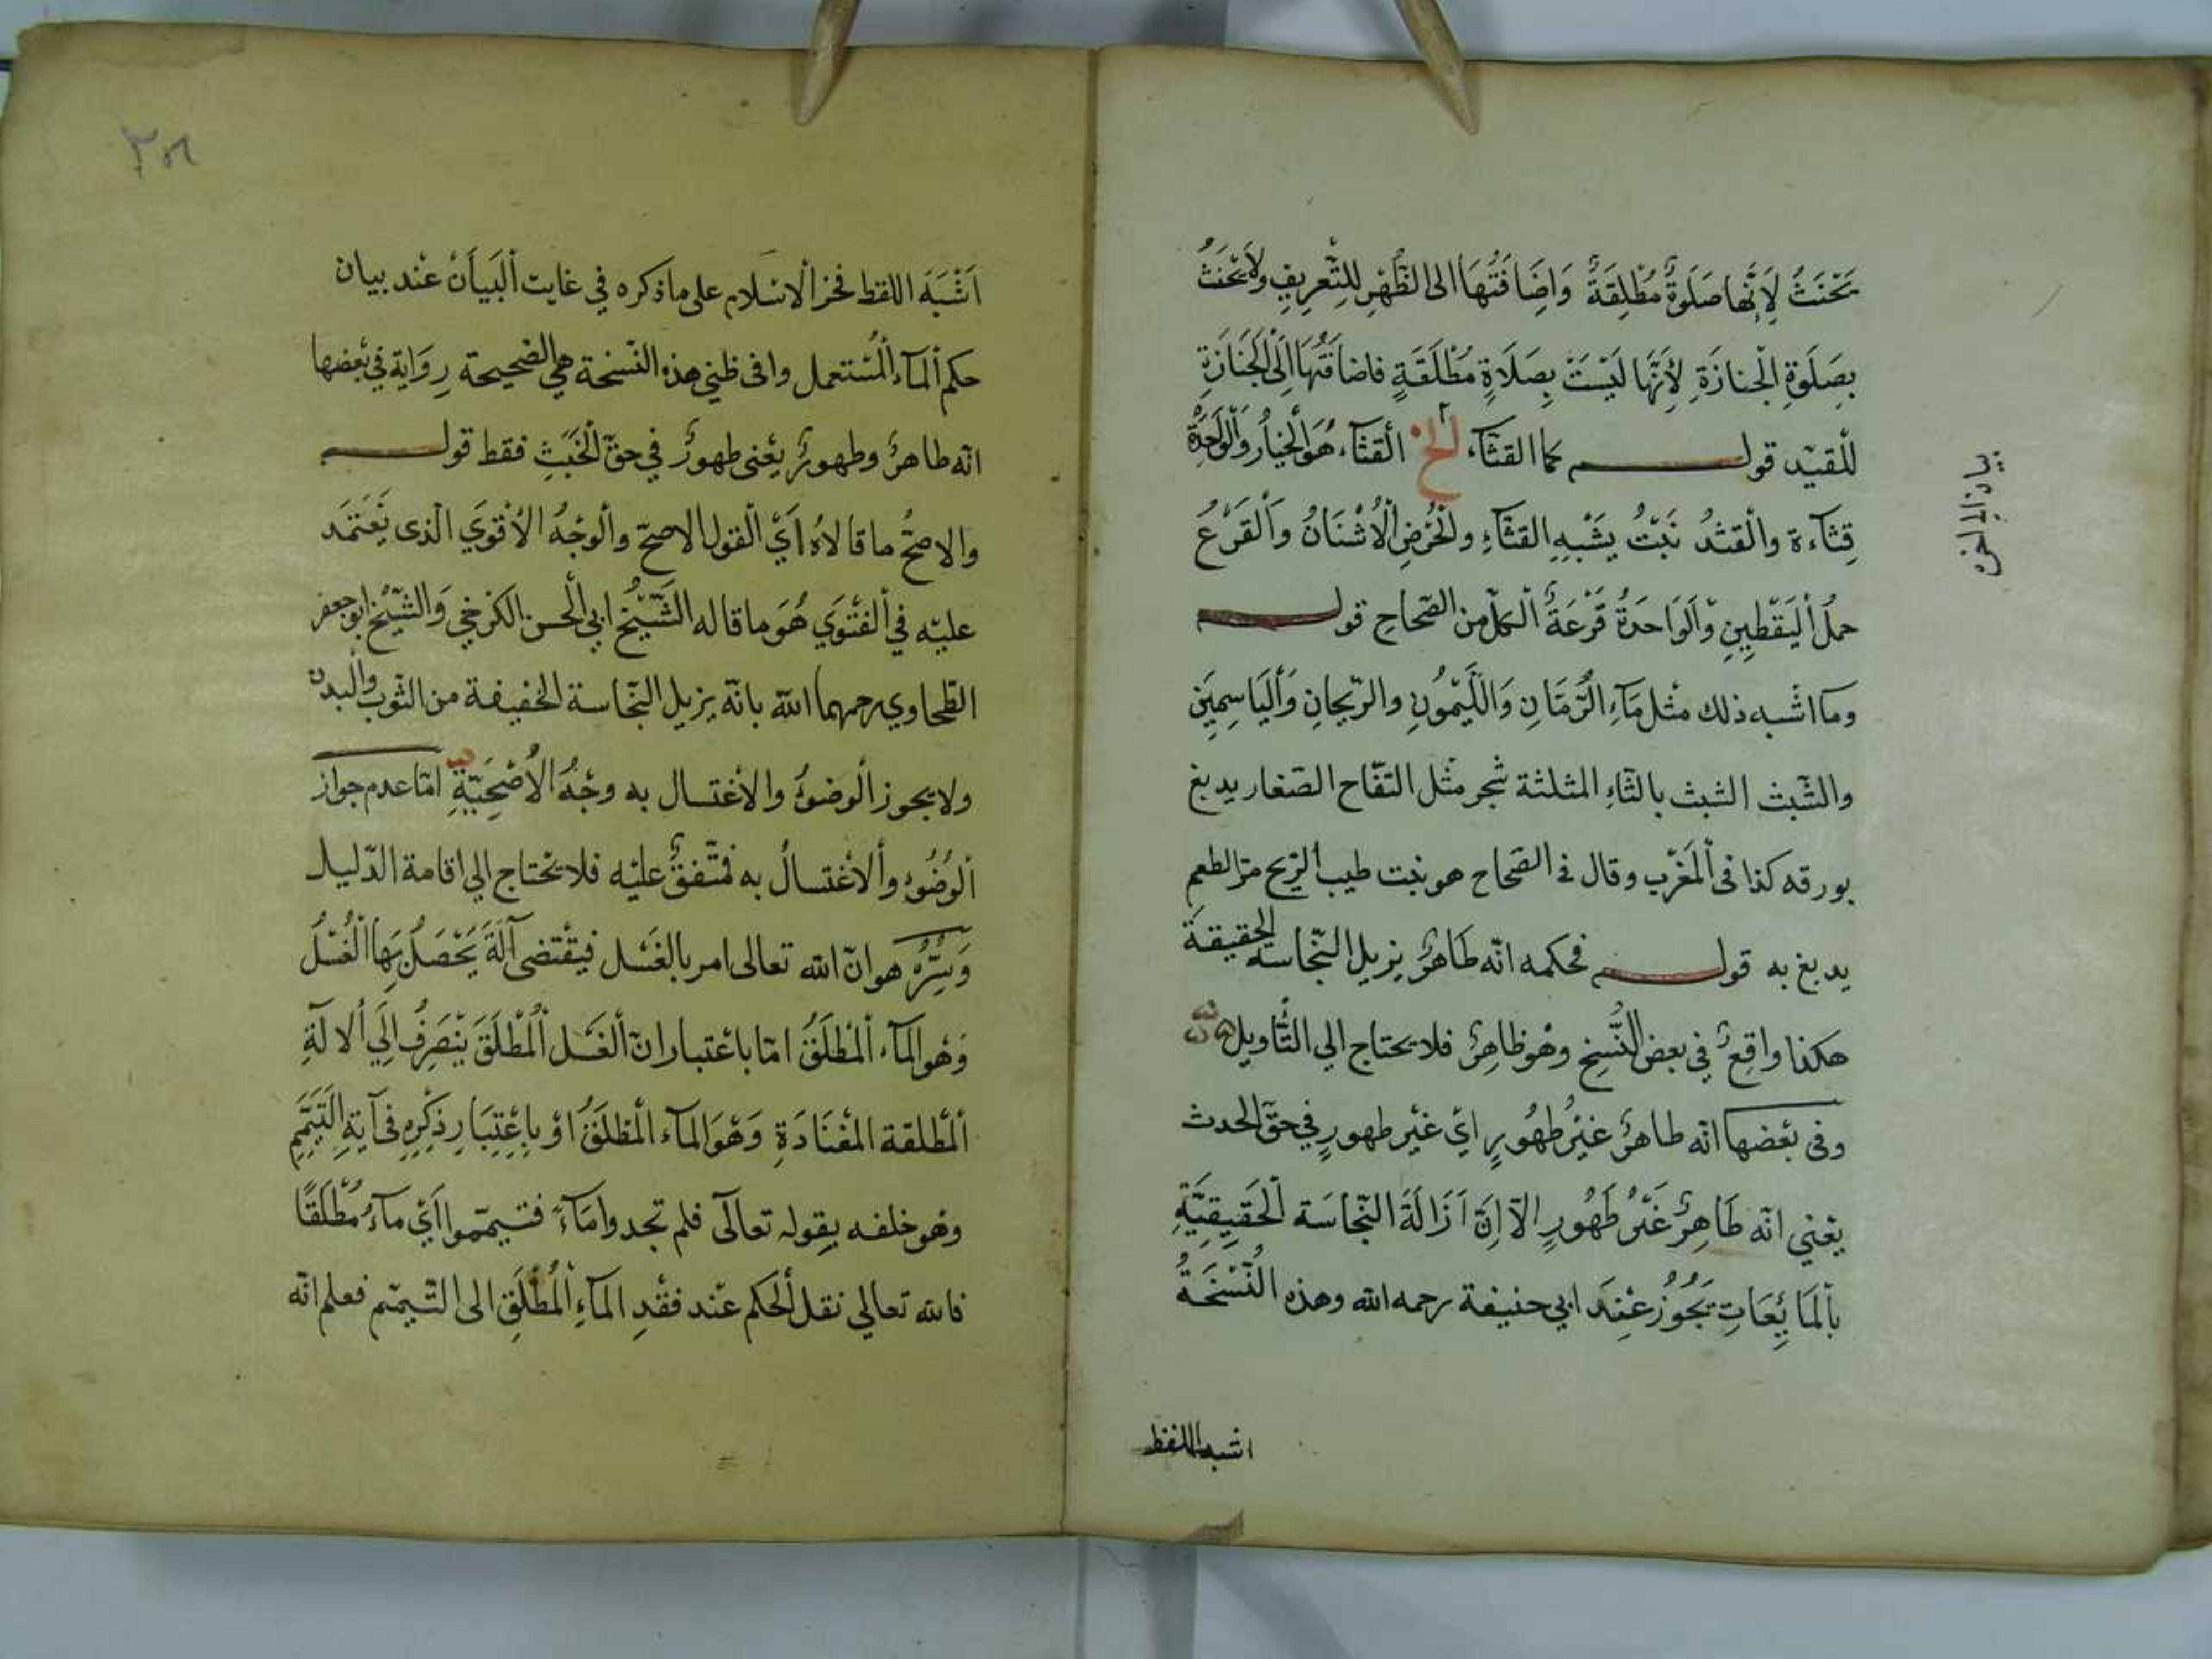 يَحْنَثُ لِاَنَّها صَلَوةٌ مُطْلِقَةٌ وَاِضَافَتُهَا الى الظُّهْرِ لِلتَّعرِيفِ ولَا يَحْنَثُ
بِصَلَوةِ الْجنازَةِ لِاَنَّهَا لَيْسَتْ بِصَلَاةٍ مُطْلَقَةٍ فاضافَتُهَا اِلَى الْجَنَازَةِ
لِلْقَيد قولـــه كما القثّاء الخ اَلْقثّاء هُوَ الْخيارُ وَالْوَاحِدَةُ
قِثّآءة والْقثدُ نَبْتٌ يَشْبَهِ القثّاءِ والْحُرُضِ الْاُشْنَانُ وَالْقَرْعُ
حملُ الْيَقْطِينِ وَالْوَاحَدَةُ قَرْعَةٌ الْكلّ من الصّحاحِ قولـــه
وما اشْبه ذلك مثْل مَآءِ الرُّمَّانِ وَاللَّيْمُونِ والرّيحانِ وَالْيَاسِمِينَ
والشّبث الشبث بالثّاءِ المثلثة شجر مثْل التفّاح الصّغار يدبغ
بورقه كذا فى الْمَغْرب وقال فى الصّحاح هو نبت طيب الرّيح مرّ الطعم
يدبغ به قولـــه فحكمه انّه طَاهرٌ يزيل النّجاسة الحقيقة
هكذا واقِعٌ في بعض النُّسخِ وهُو ظاهِرٌ فلا يحتاج الي التّأويل
وفى بعْضها انّه طاهرٌ غيْرُ طهُورٍ ايْ غيْر طهورٍ في حقّ الحدث
يعْني انّه طَاهِرٌ غَيْرُ طَهُورٍ الاّ اِنَّ اَزَالَةَ النّجاسَة الْحَقِيقِيَّةِ
بالْمَائِعَاتِ تَجُوُز عِنْدَ ابي حنيفة رحمه الله وهذه النُّسْخَةُ
اشبه اللفظ
اَشْبَهَ اللفظ فخر الْاسْلام على ما ذكره في غايت الْبَيَانْ عْند بيان
حكم الْمآء الْمُسْتعمل وافى ظني هذه النّسخة هي الصّحيحة رِوَاية في بَعْضها
انّه طاهرٌ وطهورٌ يعْنى طهورٌ في حقّ الْخَبَثِ فقط قولـــه
والاصحُّ ما قالاهُ اَيْ الْقول الاصحّ والْوجْهُ الْاقْوَي الّذى يَعْتَمد
عليْه في الْفتْوَي هُوَ ما قاله الشَّيْخُ ابي الْحسن الكرْخي وَالشّيْخ ابو جعفر
الطّحاوي رحمهما الله بانّه يزيل النّجاسة الخفيفة من الثّوب والْبدن
ولا يجوز الْوضوُ والاغْتسال به وجْهُ الْاَصْحِيَّةِ امّا عدم جواز
الْوُضُوُ والْاغْتسالُ به فمتّفقٌ عليْه فلا يحْتاج الي اقامة الدّليل
وَسِرُّهُ هو انّ الله تعالى امر بالغَسْل فيقْتضى آلَة يَحْصَلُ بِهَا الْغُسْلُ
وَهُو الْمآء الْمُطْلَقُ امّا باعْتبار انّ الْغَسْل الْمُطْلَقَ يَنْصَرِفُ اِلَي الالَةِ
الْمطْلقة المعْتَادَةِ وَهُوَ المآء الْمطلَقُ اوْ بِاعْتِبَارِ ذكْرِهِ فى آيَةِ التَيَمّمِ
وهُو خلفه بقوله تعالَى فلم تجدوا مَآءً فتيمّموا اَيْ مآءً مُطْلَقًا
فالله تعالي نقل الْحكم عنْد فقْدِ المآءِ الْمُطْلَقِ الى التّيمّم فعلم انّه